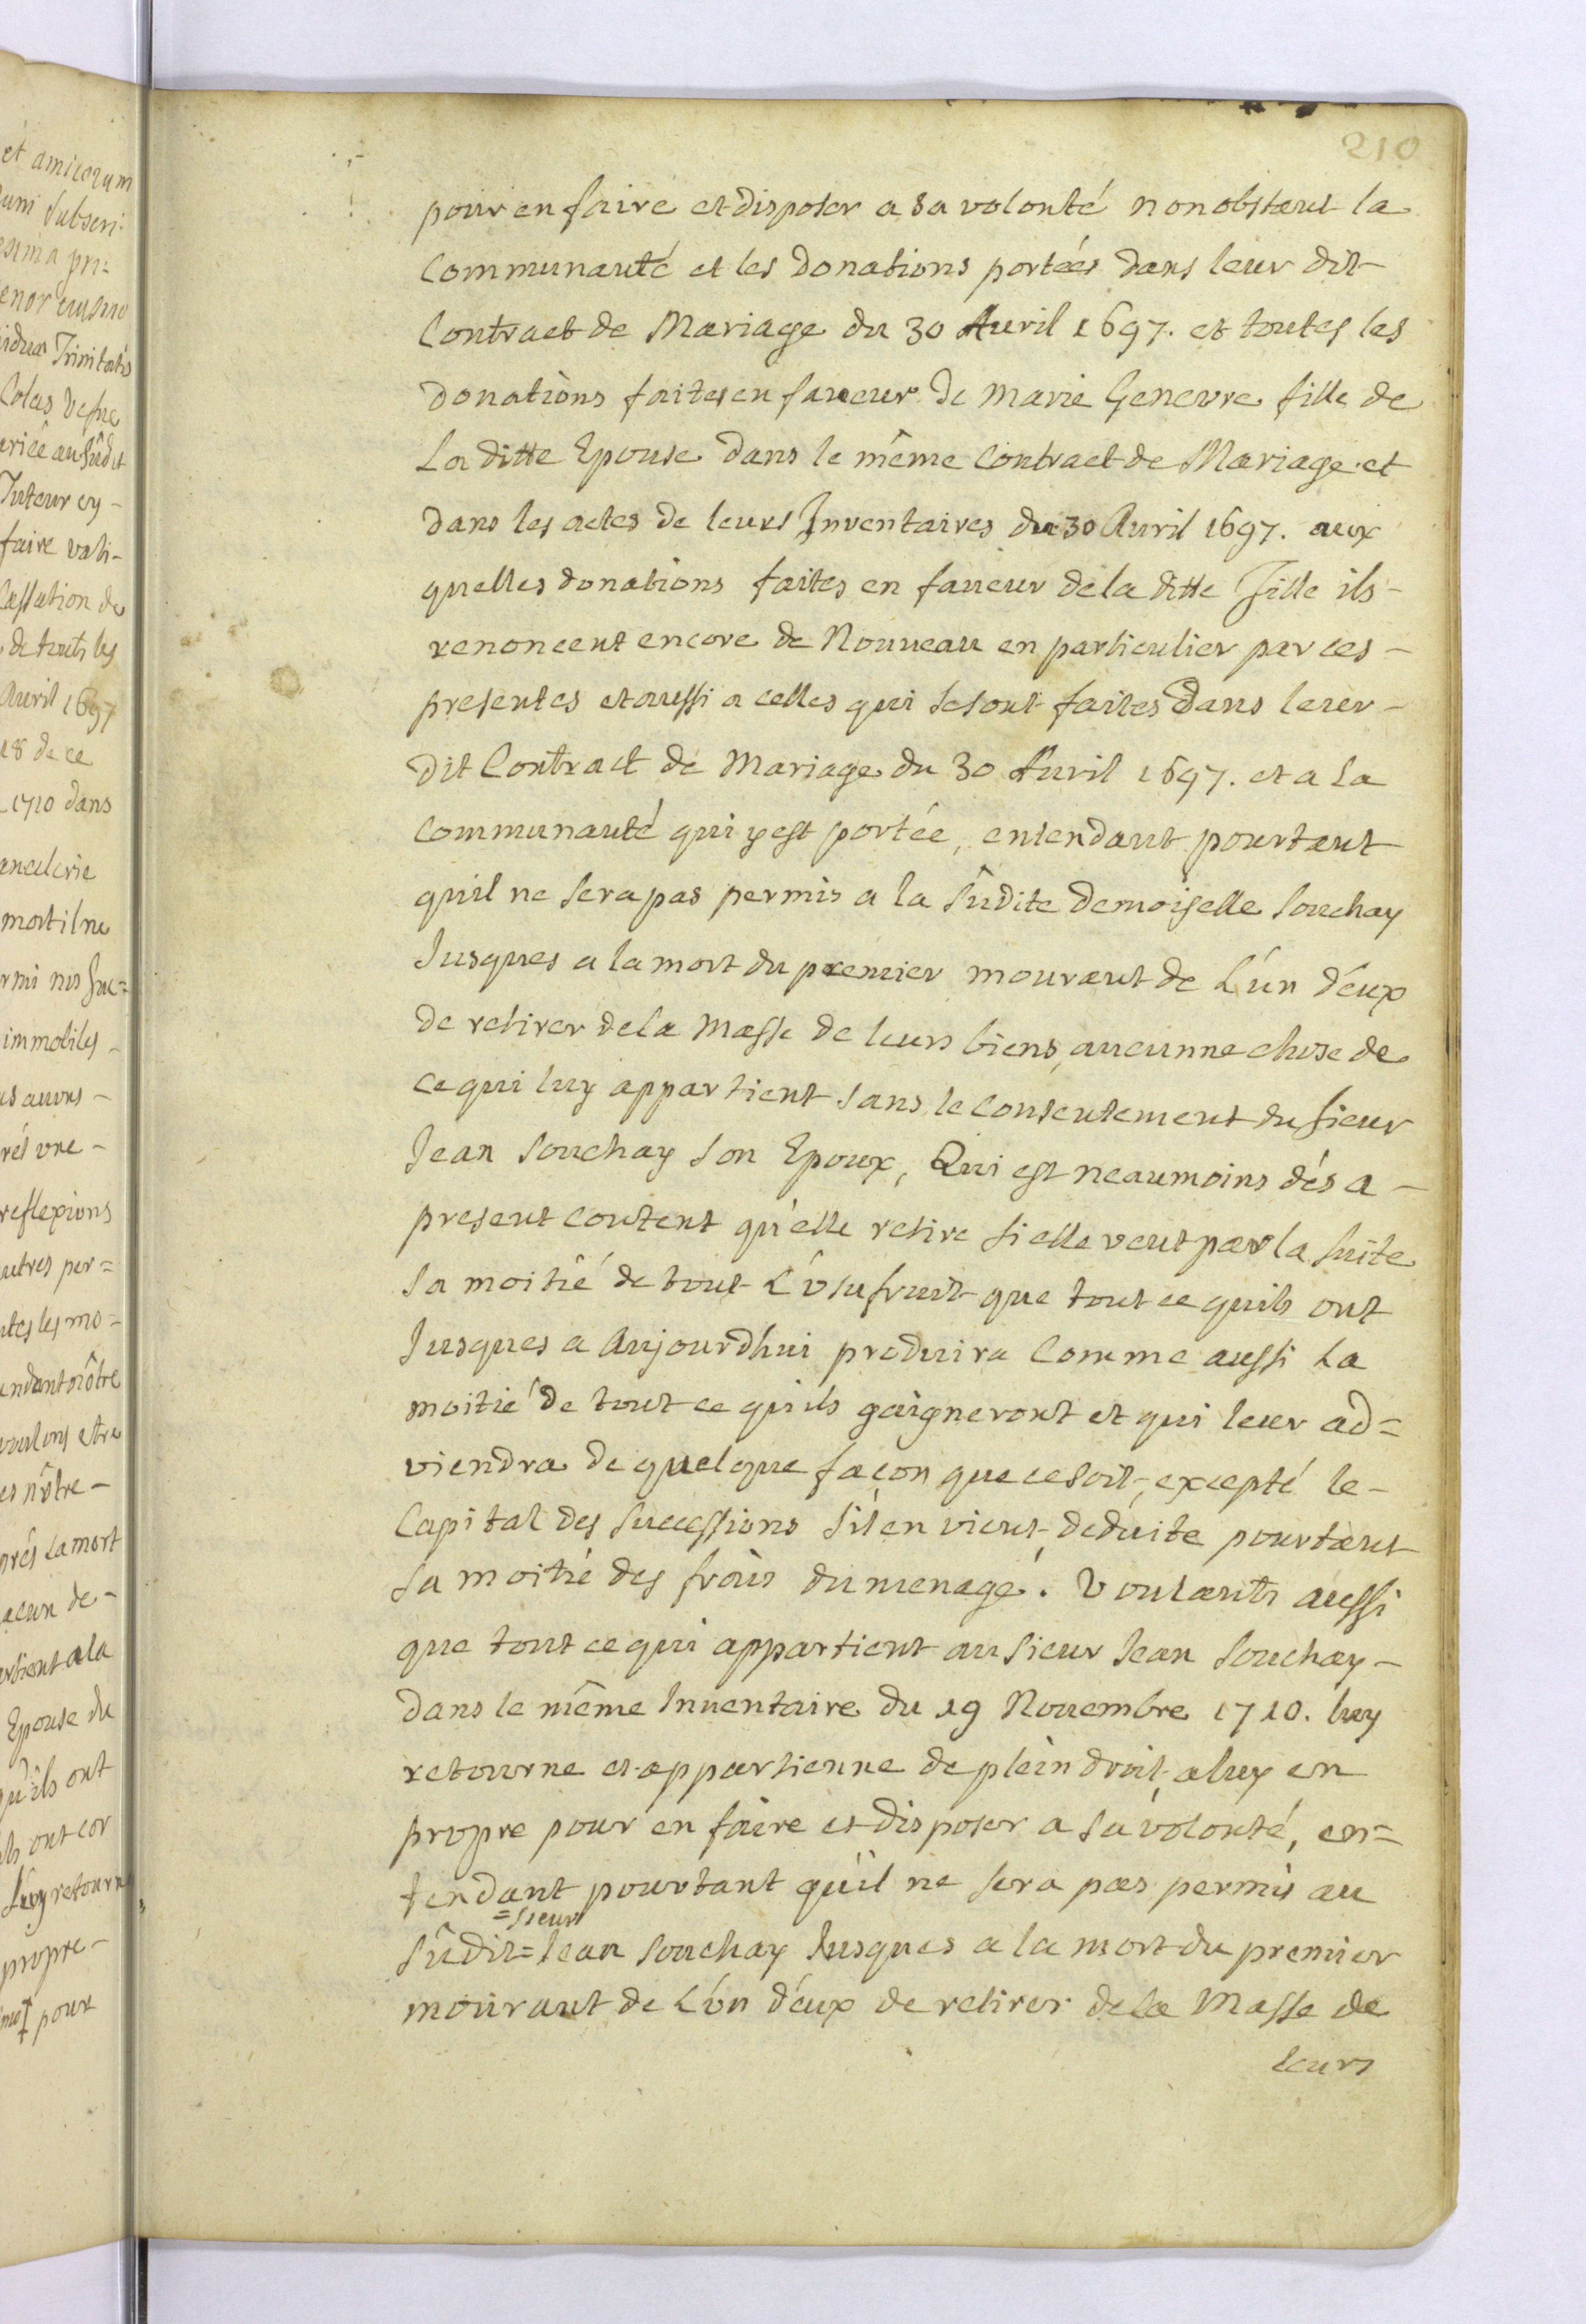 210
pour en faire et disposer a sa volonté nonobstant la
Communauté et les donations portées dans leur dit-
Contract de Mariage du 30 Auril 1697. et toutes les
donations faites en faueur de Marie Geneure fille de
La ditte Epouse dans le même Contract de Mariage et
dans les actes de leurs Inventaires du 30 Auril 1697. aux
quelles donations faites en faueur de la ditte Fille ils-
renoncent encore de Nouueau en particulier par ces-
presentes et aussi a celles qui se sont faites dans leur-
dit Contract de Mariage du 30 Auril 1697. et a la
Communauté qui y est portée, entendant pourtant
qu'il ne sera pas permis a la sûdite demoiselle Souchay
Jusques a la mort du premier mourant de L'ún d'éux
de retirer de la Masse de leurs biens, aucunne chose de
ce qui luy appartient sans le consentement du sieur
Jean Souchay son Epoux, Qui est neaumoins dés a-
present content qu'elle retire si elle veut par la suite
sa moitié de tout L'ûsufruit que tout ce qu'ils ont
Jusques a Aujourdhui produira Comme aussi La
moitié de tout ce qu'ils gaigneront et qui leur ad=
viendra de quelque façon que ce soit, excepté le-
Capital des successions s'il en vient, deduite pourtant
sa moitié des frais du menage. Voulants aussi
que tout ce qui appartient au sieur Jean Souchay-
dans le même Inuentaire du 19 Nouembre 1710. luy
retourne et appartienne de plein droit a luy en
propre pour en faire et disposer a sa volonté, en=
tendant pourtant qu'il ne sera pas permis au
=sieur
sûdit= Jean Souchay Jusques a la mort du premier
mourant de L'ún d'éux de retirer de la Masse de
leurs
et amicorum
Trinitatis
Tuteur cy-
faire vali-
Cassation de
de touts les
Auril 1697
18 de ce
1710 dans
mort il ne
immobiles-
reflexions
Epouse du
qu'ils ont
propre-
pour